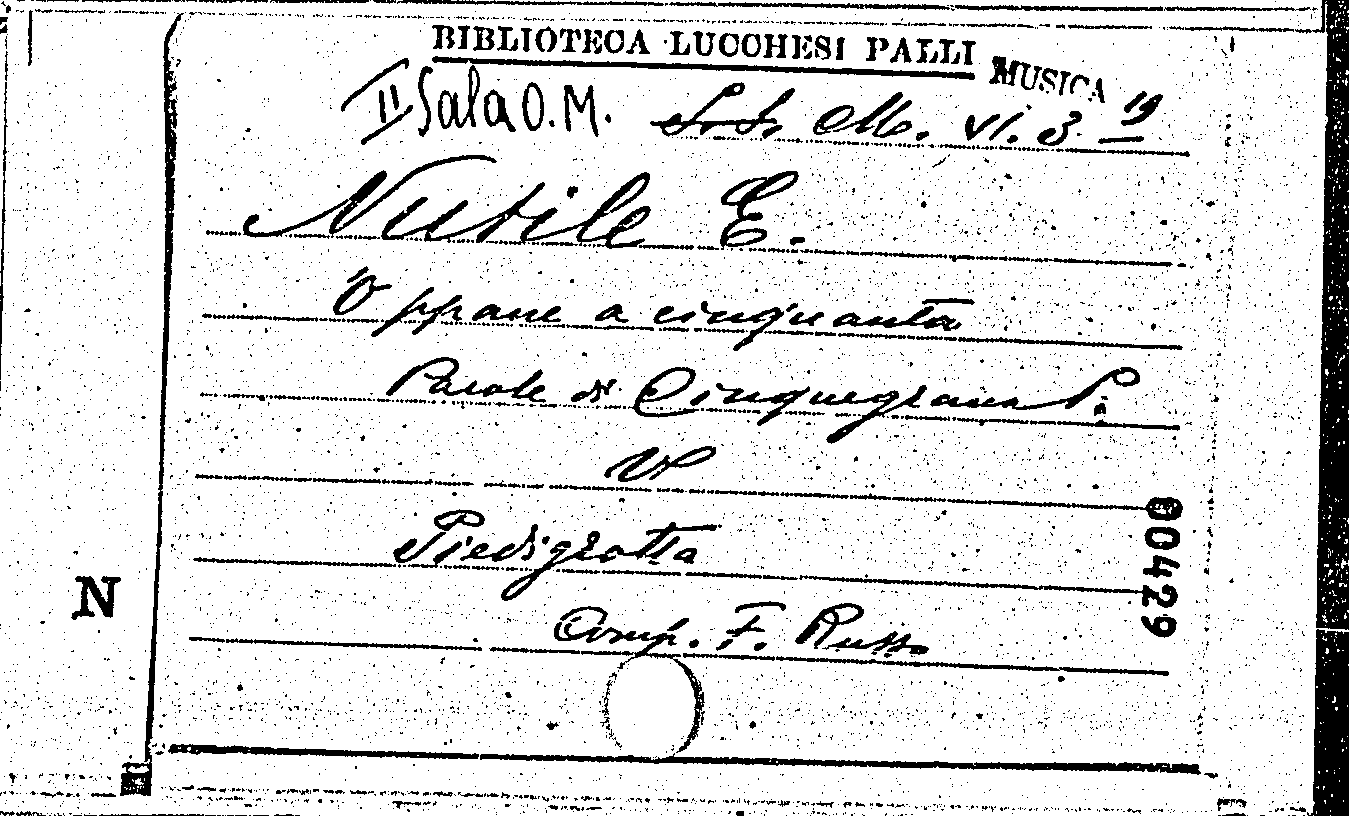 BIBLIOTECA LUCCHESI PALLI
MUSICA
II Sala O.M. S.S. M. VI. 3 19
Nutile E.
'O ppane a cinquanta
Parole di Cinquegrana P.
Piedigrotta
N
Comp. F. Russo
00429